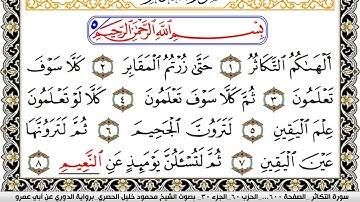 بِسْمِ اللَّهِ الرَّحْمَٰنِ الرَّحِيمِ ٥
أَلْهَاكُمُ التَّكَاثُرُ ١ حَتَّىٰ زُرْتُمُ الْمَقَابِرَ ٢ كَلَّا سَوْفَ
تَعْلَمُونَ ٣ ثُمَّ كَلَّا سَوْفَ تَعْلَمُونَ ٤ كَلَّا لَوْ تَعْلَمُونَ
عِلْمَ الْيَقِينِ ٥ لَتَرَوُنَّ الْجَحِيمَ ٦ ثُمَّ لَتَرَوُنَّهَا
عَيْنَ الْيَقِينِ ٧ ثُمَّ لَتُسْأَلُنَّ يَوْمَئِذٍ عَنِ النَّعِيمِ ٨
سورة التكاثر ..الصفحة ٦٠٠... الحزب ٦٠ .الجزء ٣٠ . بصوت الشيخ محمود خليل الحصري .برواية الدوري عن أبي عمرو